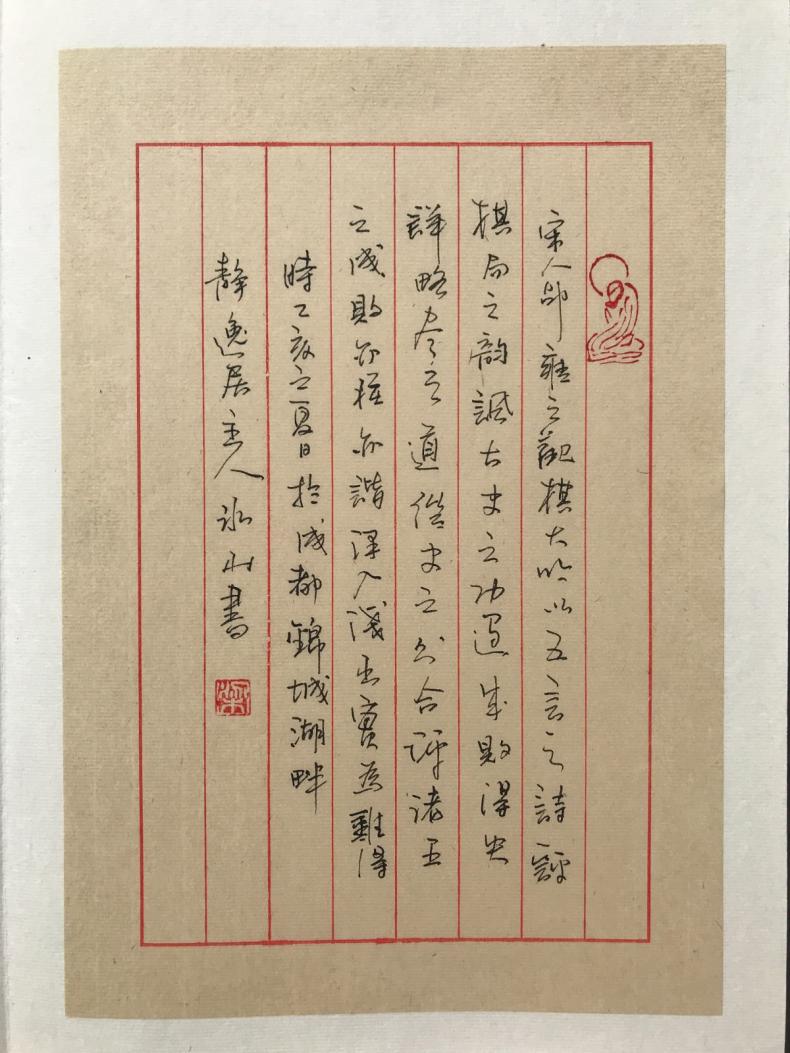 宋人邵雍之觀棋大吟以五言之詩評
棋局之韵誦古史之功過成敗得失
詳略尽言道俗史之分合評诸王
之成敗亦莊亦諧深入淺出實為難得
時乙亥之夏日於成都錦城湖畔
靜逸居主人冰山書